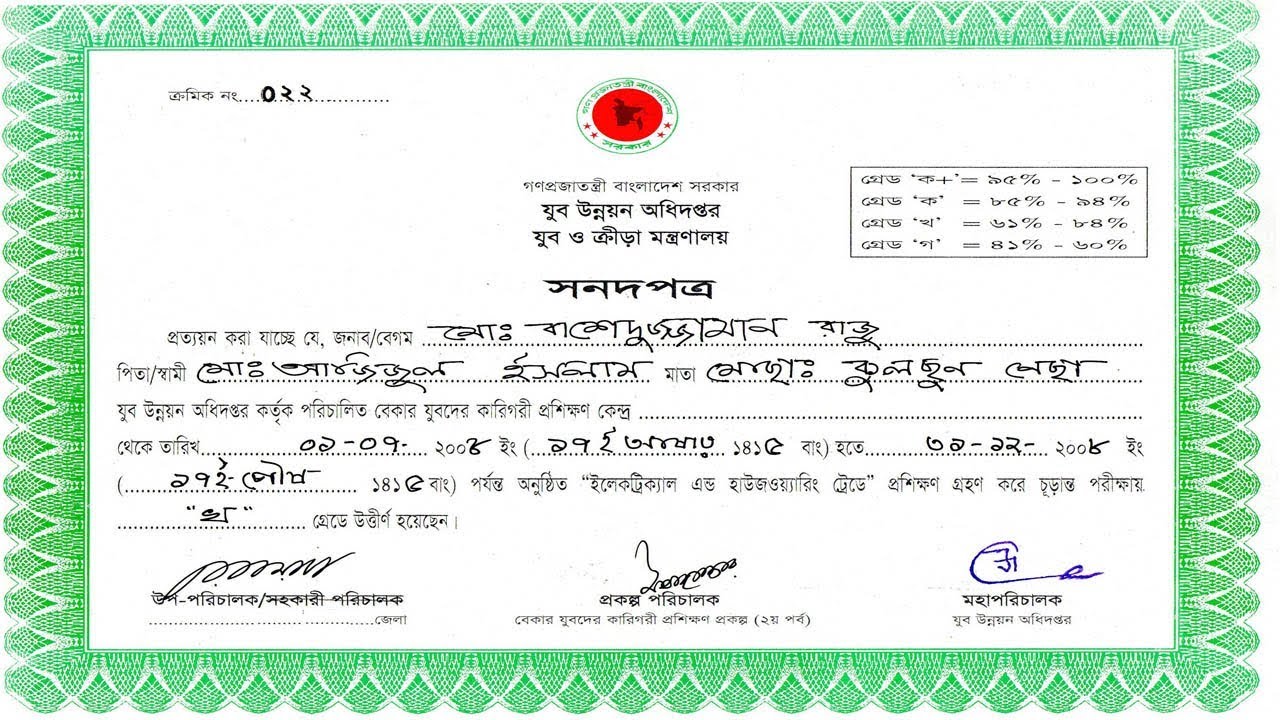 ক্রমিক নং....০২২................
গণপ্রজাতন্ত্রী বাংলাদেশ
সরকার
গণপ্রজাতন্ত্রী বাংলাদেশ সরকার
যুব উন্নয়ন অধিদপ্তর
যুব ও ক্রীড়া মন্ত্রণালয়
গ্রেড ‘ক+’= ৯৫% - ১০০%
গ্রেড ‘ক’ = ৮৫% - ৯৪%
গ্রেড ‘খ’ = ৬১% - ৮৪%
গ্রেড ‘গ’ = ৪১% - ৬০%
সনদপত্র
প্রত্যয়ন করা যাচ্ছে যে, জনাব/বেগম মোঃ রাশেদুজ্জামান রাজু
পিতা/স্বামী মোঃ আজিজুল ইসলাম মাতা মোছাঃ কুলছুন নেছা
যুব উন্নয়ন অধিদপ্তর কর্তৃক পরিচালিত বেকার যুবদের কারিগরী প্রশিক্ষণ কেন্দ্র
থেকে তারিখ ০১-০৭- ২০০৮ ইং (১৭ই আষাঢ় ১৪১৫ বাং) হতে ৩১-১২- ২০০৮ ইং
(১৭ই-পৌষ ১৪১৫ বাং) পর্যন্ত অনুষ্ঠিত “ইলেকট্রিক্যাল এন্ড হাউজওয়্যারিং ট্রেডে” প্রশিক্ষণ গ্রহণ করে চূড়ান্ত পরীক্ষায়
"খ" গ্রেডে উত্তীর্ণ হয়েছেন।
উপ-পরিচালক/সহকারী পরিচালক
জেলা
প্রকল্প পরিচালক
বেকার যুবদের কারিগরী প্রশিক্ষণ প্রকল্প (২য় পর্ব)
মহাপরিচালক
যুব উন্নয়ন অধিদপ্তর